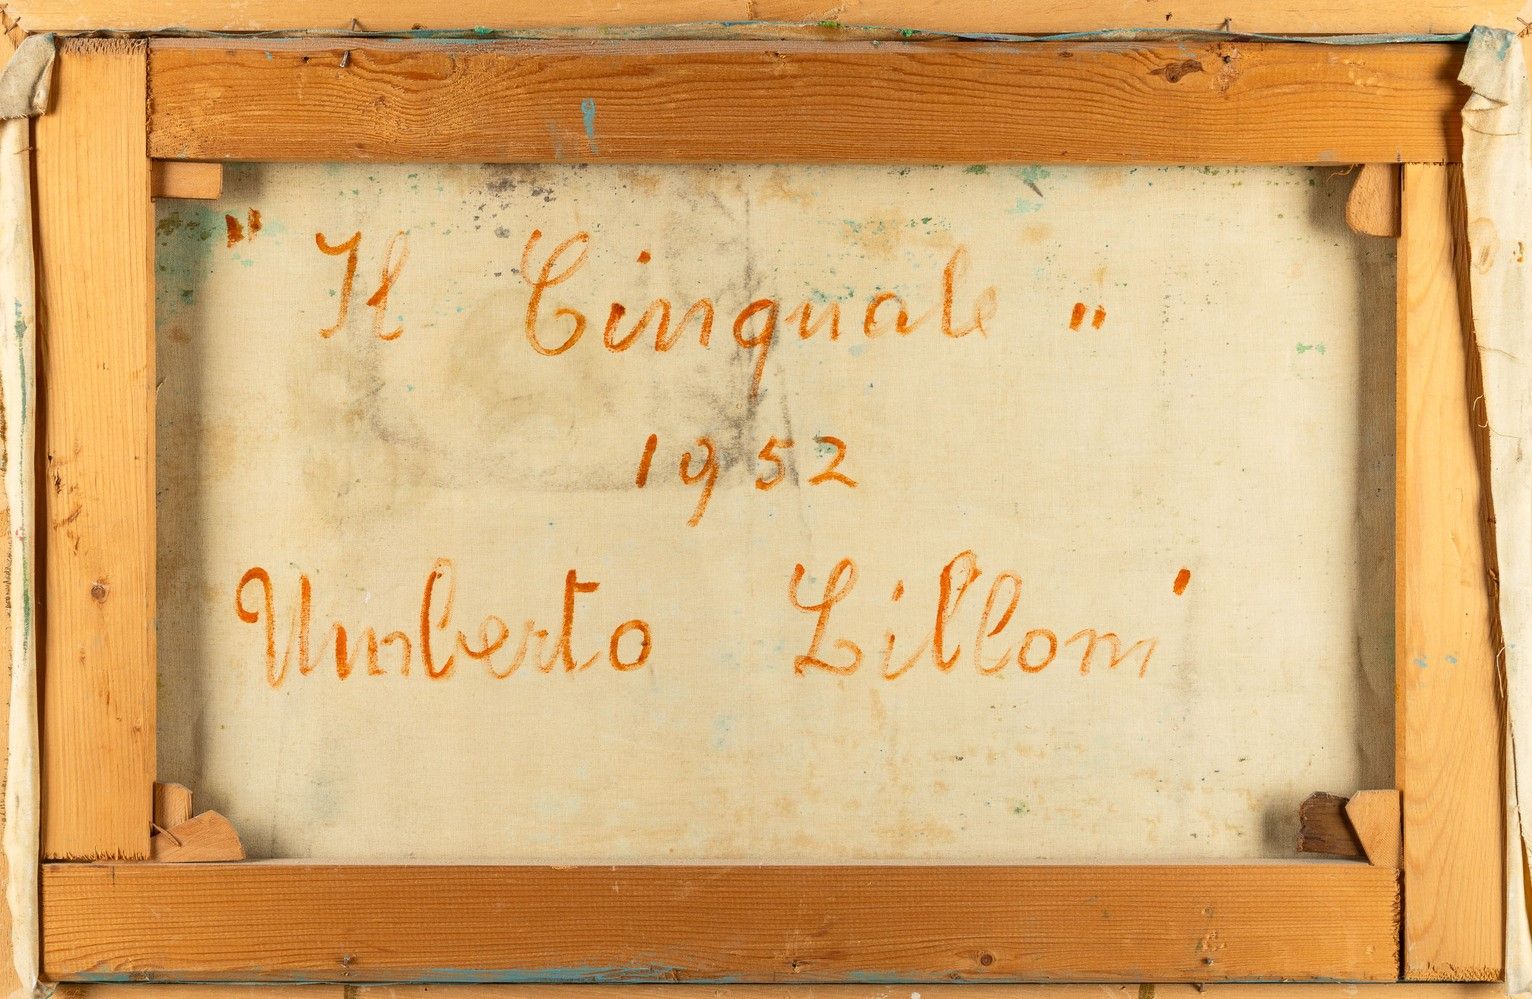 "Il Cinquale"
1952
Umberto Lilloni